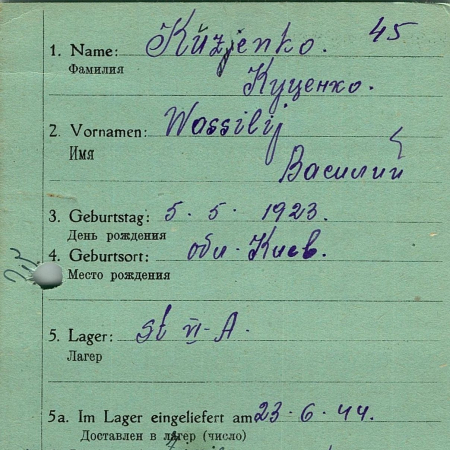 45
1. Name: Küzjenko.
Фамилия Куценко.
2. Vornamen: Wassilij
Имя Василий
3. Geburtstag: 5. 5. 1923.
День рождения
4. Geburtsort: обл. Киев.
Место рождения
5. Lager: St VI-A.
Лагер
5a. Im Lager eingeliefert am 23. 6. 44.
Доставлен в лагер (число)